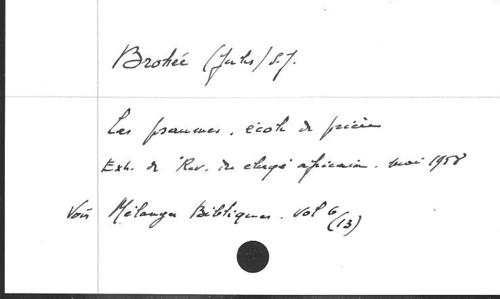 Brohée (Jules) S.J.
Les psaumes, école de prière
Extr. de Rev. du clergé africain. mai 1958
Voir Mélanges Bibliques. vol 6
(13)